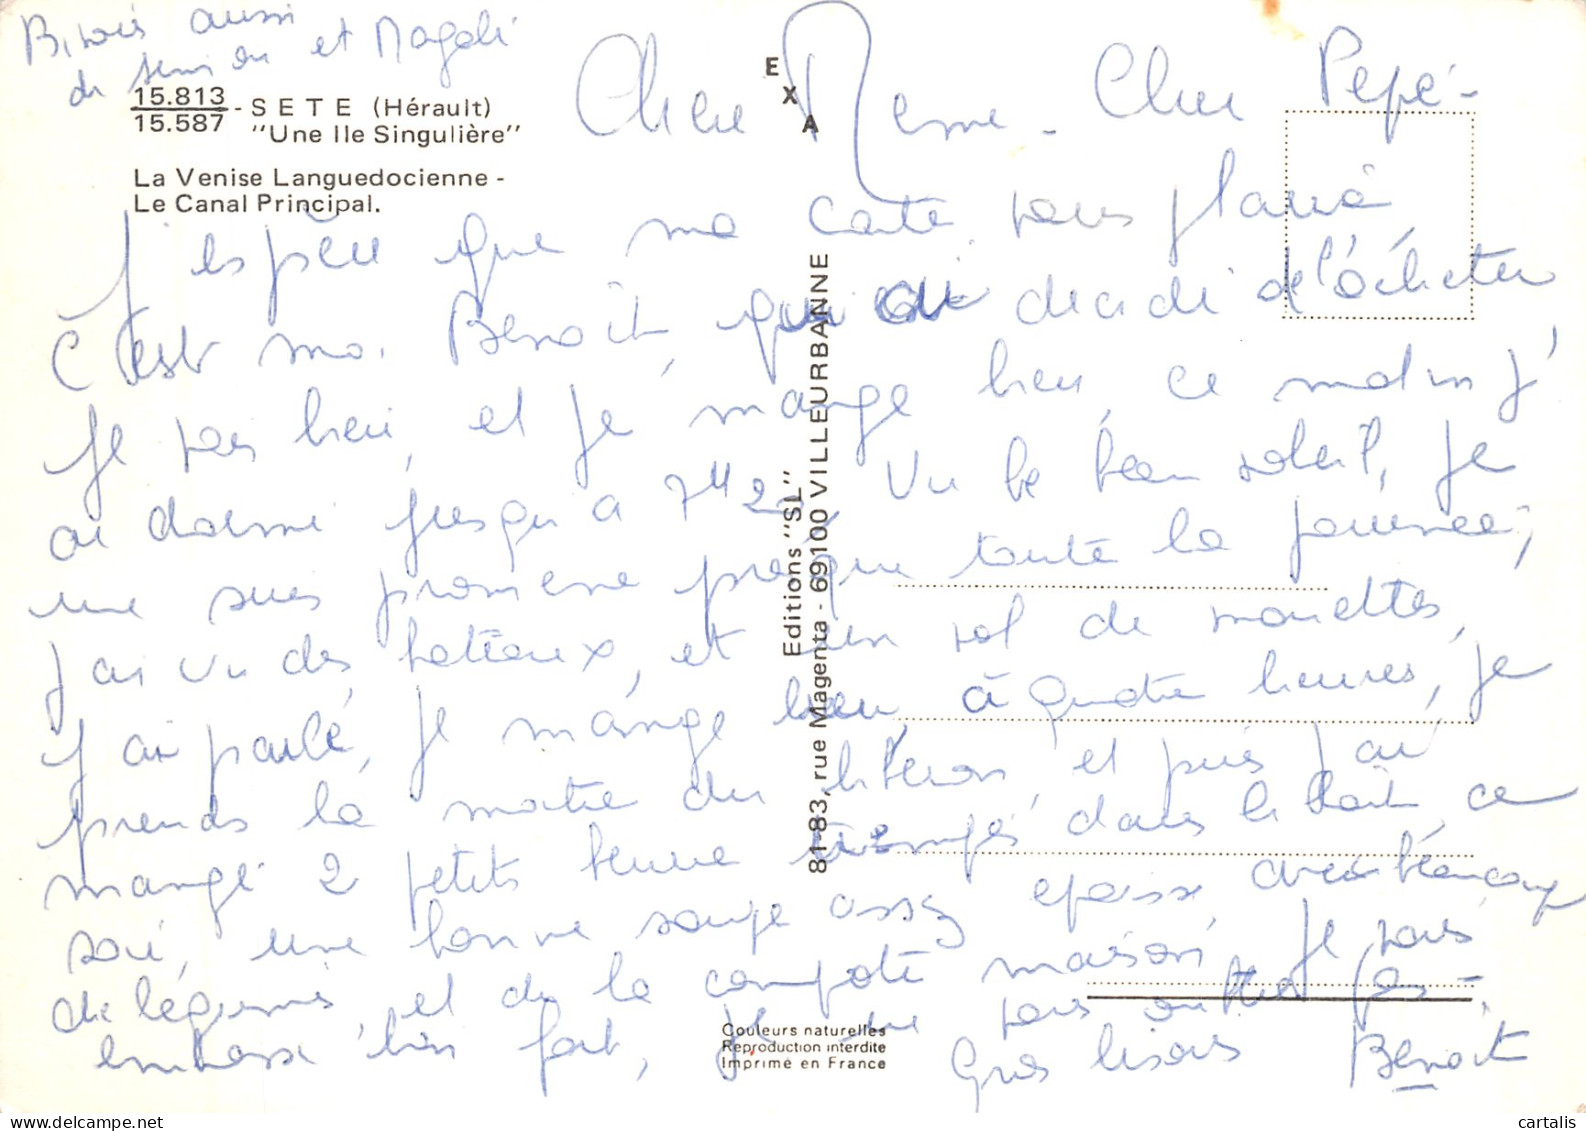 Bisous aussi
de et Magali
15.813
15.587 - SETE (Hérault)
"Une Ile Singulière"
La Venise Languedocienne -
Le Canal Principal.
EXA
Editions "SL"
81-83, rue Magenta - 69100 VILLEURBANNE
Chère Meme - Cher Pepé -
J'espère que ma carte vous plaira,
C'est moi Benoit, qui ai décidé de l'acheter
Je vais bien, et je mange bien, ce matin j'
ai dormi jusqu'a 7H Vu le beau soleil, je
me suis promené presque toute la journée,
j'ai vu des bateaux, et un vol de mouettes,
j'ai parlé, je mange bien, à quatre heures, je
prends la moitié du biberon, et puis j'ai
mangé 2 petits beurre trempés dans le lait, ce
soir, une bonne soupe assez épaisse avec beaucoup
de légumes, et de la compote maison, Je vous
embrasse bien fort, je ne vous oublie pas -,
Gros bisous Benoit
Couleurs naturelles
Reproduction interdite
Imprimé en France
cartalis